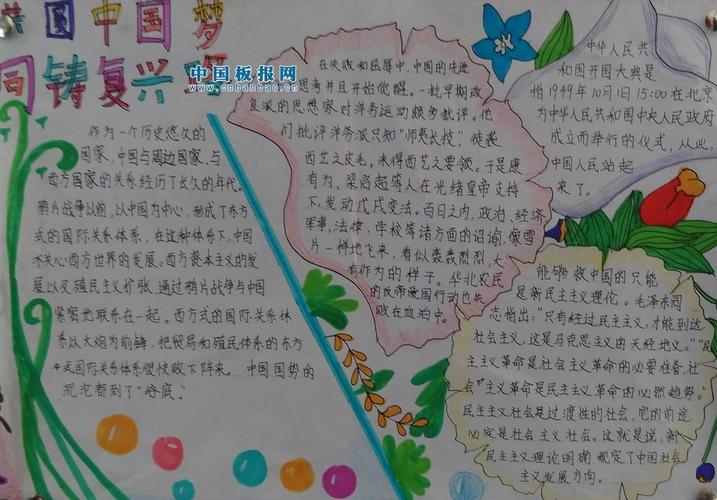 共圆中国梦
同铸复兴
中国板报网
www.cnbanbao.cn
作为一个历史悠久的
国家,中国与周边国家,与
西方国家的关系经历了长久的年代。
鸦片战争以前,以中国为中心,形成了东方
式的国际关系体系,在这种体系下,中国
不关心西方世界的发展。西方资本主义的发
展以及殖民主义扩张,通过鸦片战争与中国
紧密地联系在一起。西方式的国际关系体
系以大炮为前锋,把贸易和殖民体系的东方
式国际关系体系很快败下阵来,中国国势的
况沱都到了“谷底。”
在失败和屈辱中,中国的先进
思考并且开始觉醒。一批早期改
良派的思想家对洋务运动颇多批评。他
们批评洋务派只知“师夷长技,徒袭
西艺之皮毛,未得西艺之要领。于是康
有为,梁启超等人在光绪皇帝支持
下,发动戊戌变法。百日之内,政治,经济
军事,法律,学校等诸方面的诏谕,像雪
片一样地飞来,看似轰轰烈烈,大
有作为的样子。华北农民
的反帝爱国行动也失
败在血泊中。
中华人民共
和国开国大典是
指1949年10月1日15:00在北京
为中华人民共和国中央人民政府
成立而举行的仪式,从此,
中国人民站起
来了。
能够救中国的只能
是新民主主义理论。毛泽东同
志指出:“只有经过民主主义,才能到达
社会主义,这是马克思主义的天经地义。”“民
主主义革命是社会主义革命的必要准备,社
会主义革命是民主主义革命的必然趋势。”
民主主义社会是过渡性的社会,它的前途
必定是社会主义社会。这就是说,新
民主主义理论明确规定了中国社会
主义发展方向。